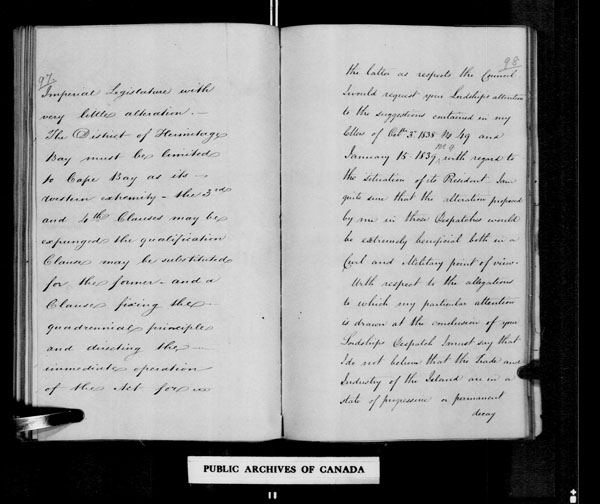 97.
Imperial Legislature with
very little alteration. —
The District of Hermitage
Bay must be limited
to Cape Bay as its —
western extremity - the 3rd
and 4th Clauses may be
expunged the qualification
Clause may be substituted
for the former - and a
Clause fixing the —
quadrennial principle
and directing the —
immediate operation
of the Act for
98
the latter as respects the Council
I would request your Lordships attention
to the suggestions contained in my
letters of Octr 3d 1838 No 49 and
January 15 1839 No 9 with regard to
the situation of its President I am
quite sure that the alteration proposed
by me in those Despatches would
be extremely beneficial both in a
Civil and Military point of view.
With respect to the allegations
to which my particular attention
is drawn at the conclusion of your
Lordships Despatch I must say that
I do not believe that the Trade and
Industry of the Island are in a
state of progressive or permanent
decay
PUBLIC ARCHIVES OF CANADA